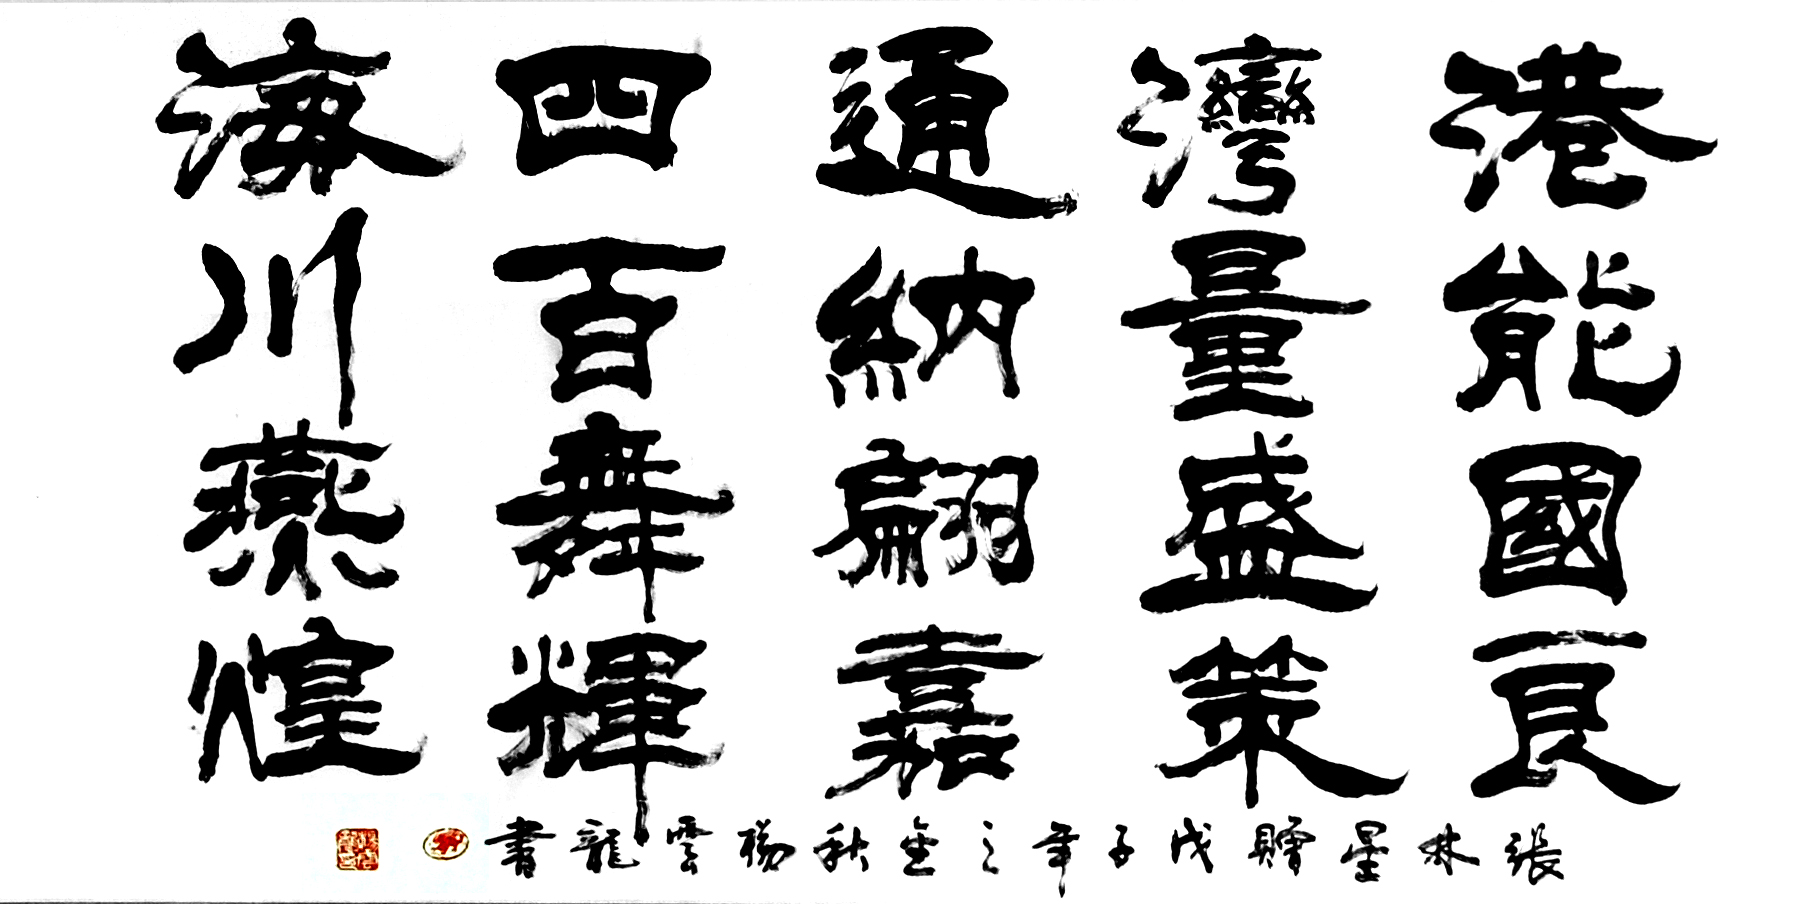 港能國良
灣量盛策
通納翩嘉
四百舞輝
海川燕煌
張林星贈戊子年之金秋楊雲龍書